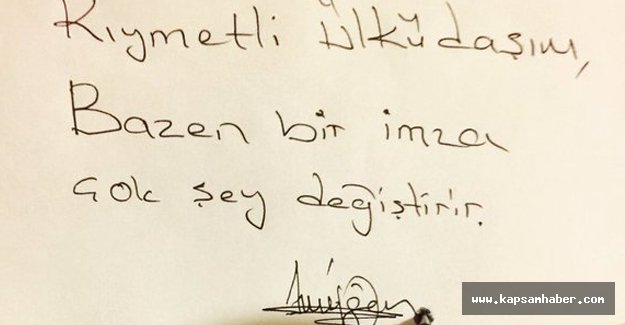 Kıymetli Ülküdaşım,
Bazen bir imza
çok şey değiştirir.
www.kapsamhaber.com